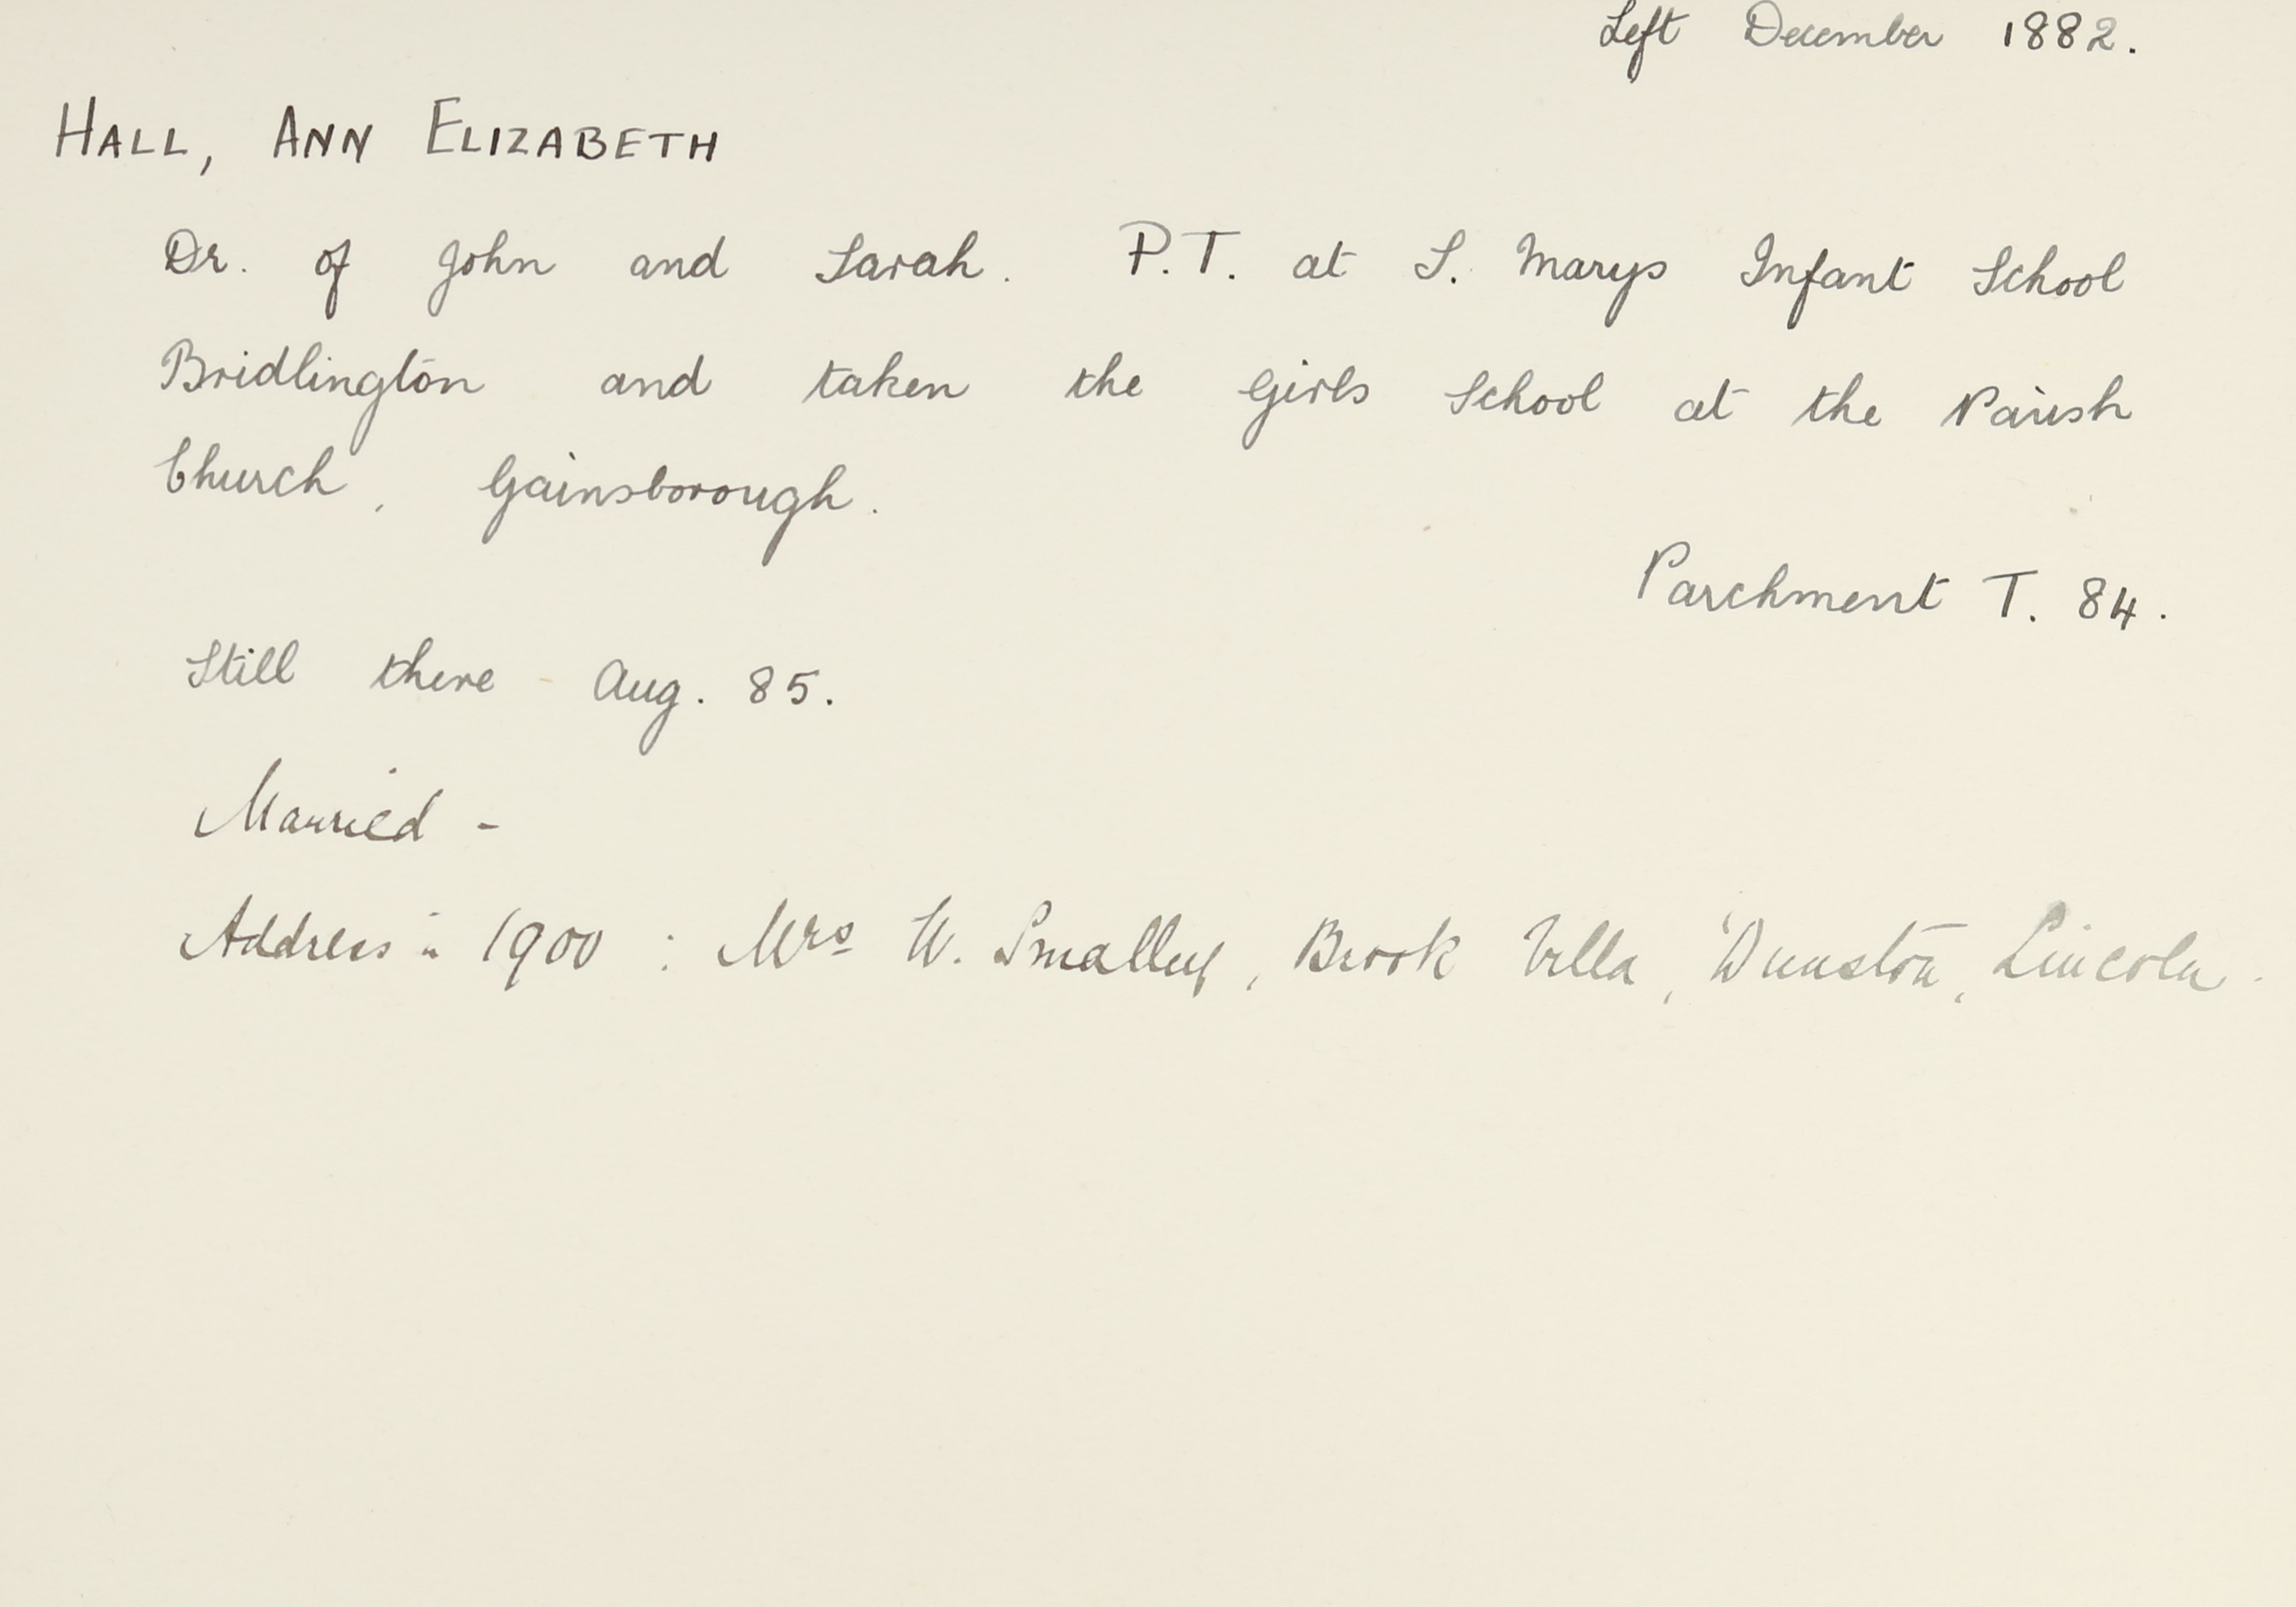 Left December 1882.
HALL, ANN ELIZABETH
Dr. of John and Sarah. P.T. at S. Marys Infant School
Bridlington and taken the Girls School at the Parish
Church, Gainsborough.
Parchment T. 84.
Still there Aug. 85.
Married -
Address : 1900 : Mrs W. Smalley, Brook Villa, Dunston, Lincoln.